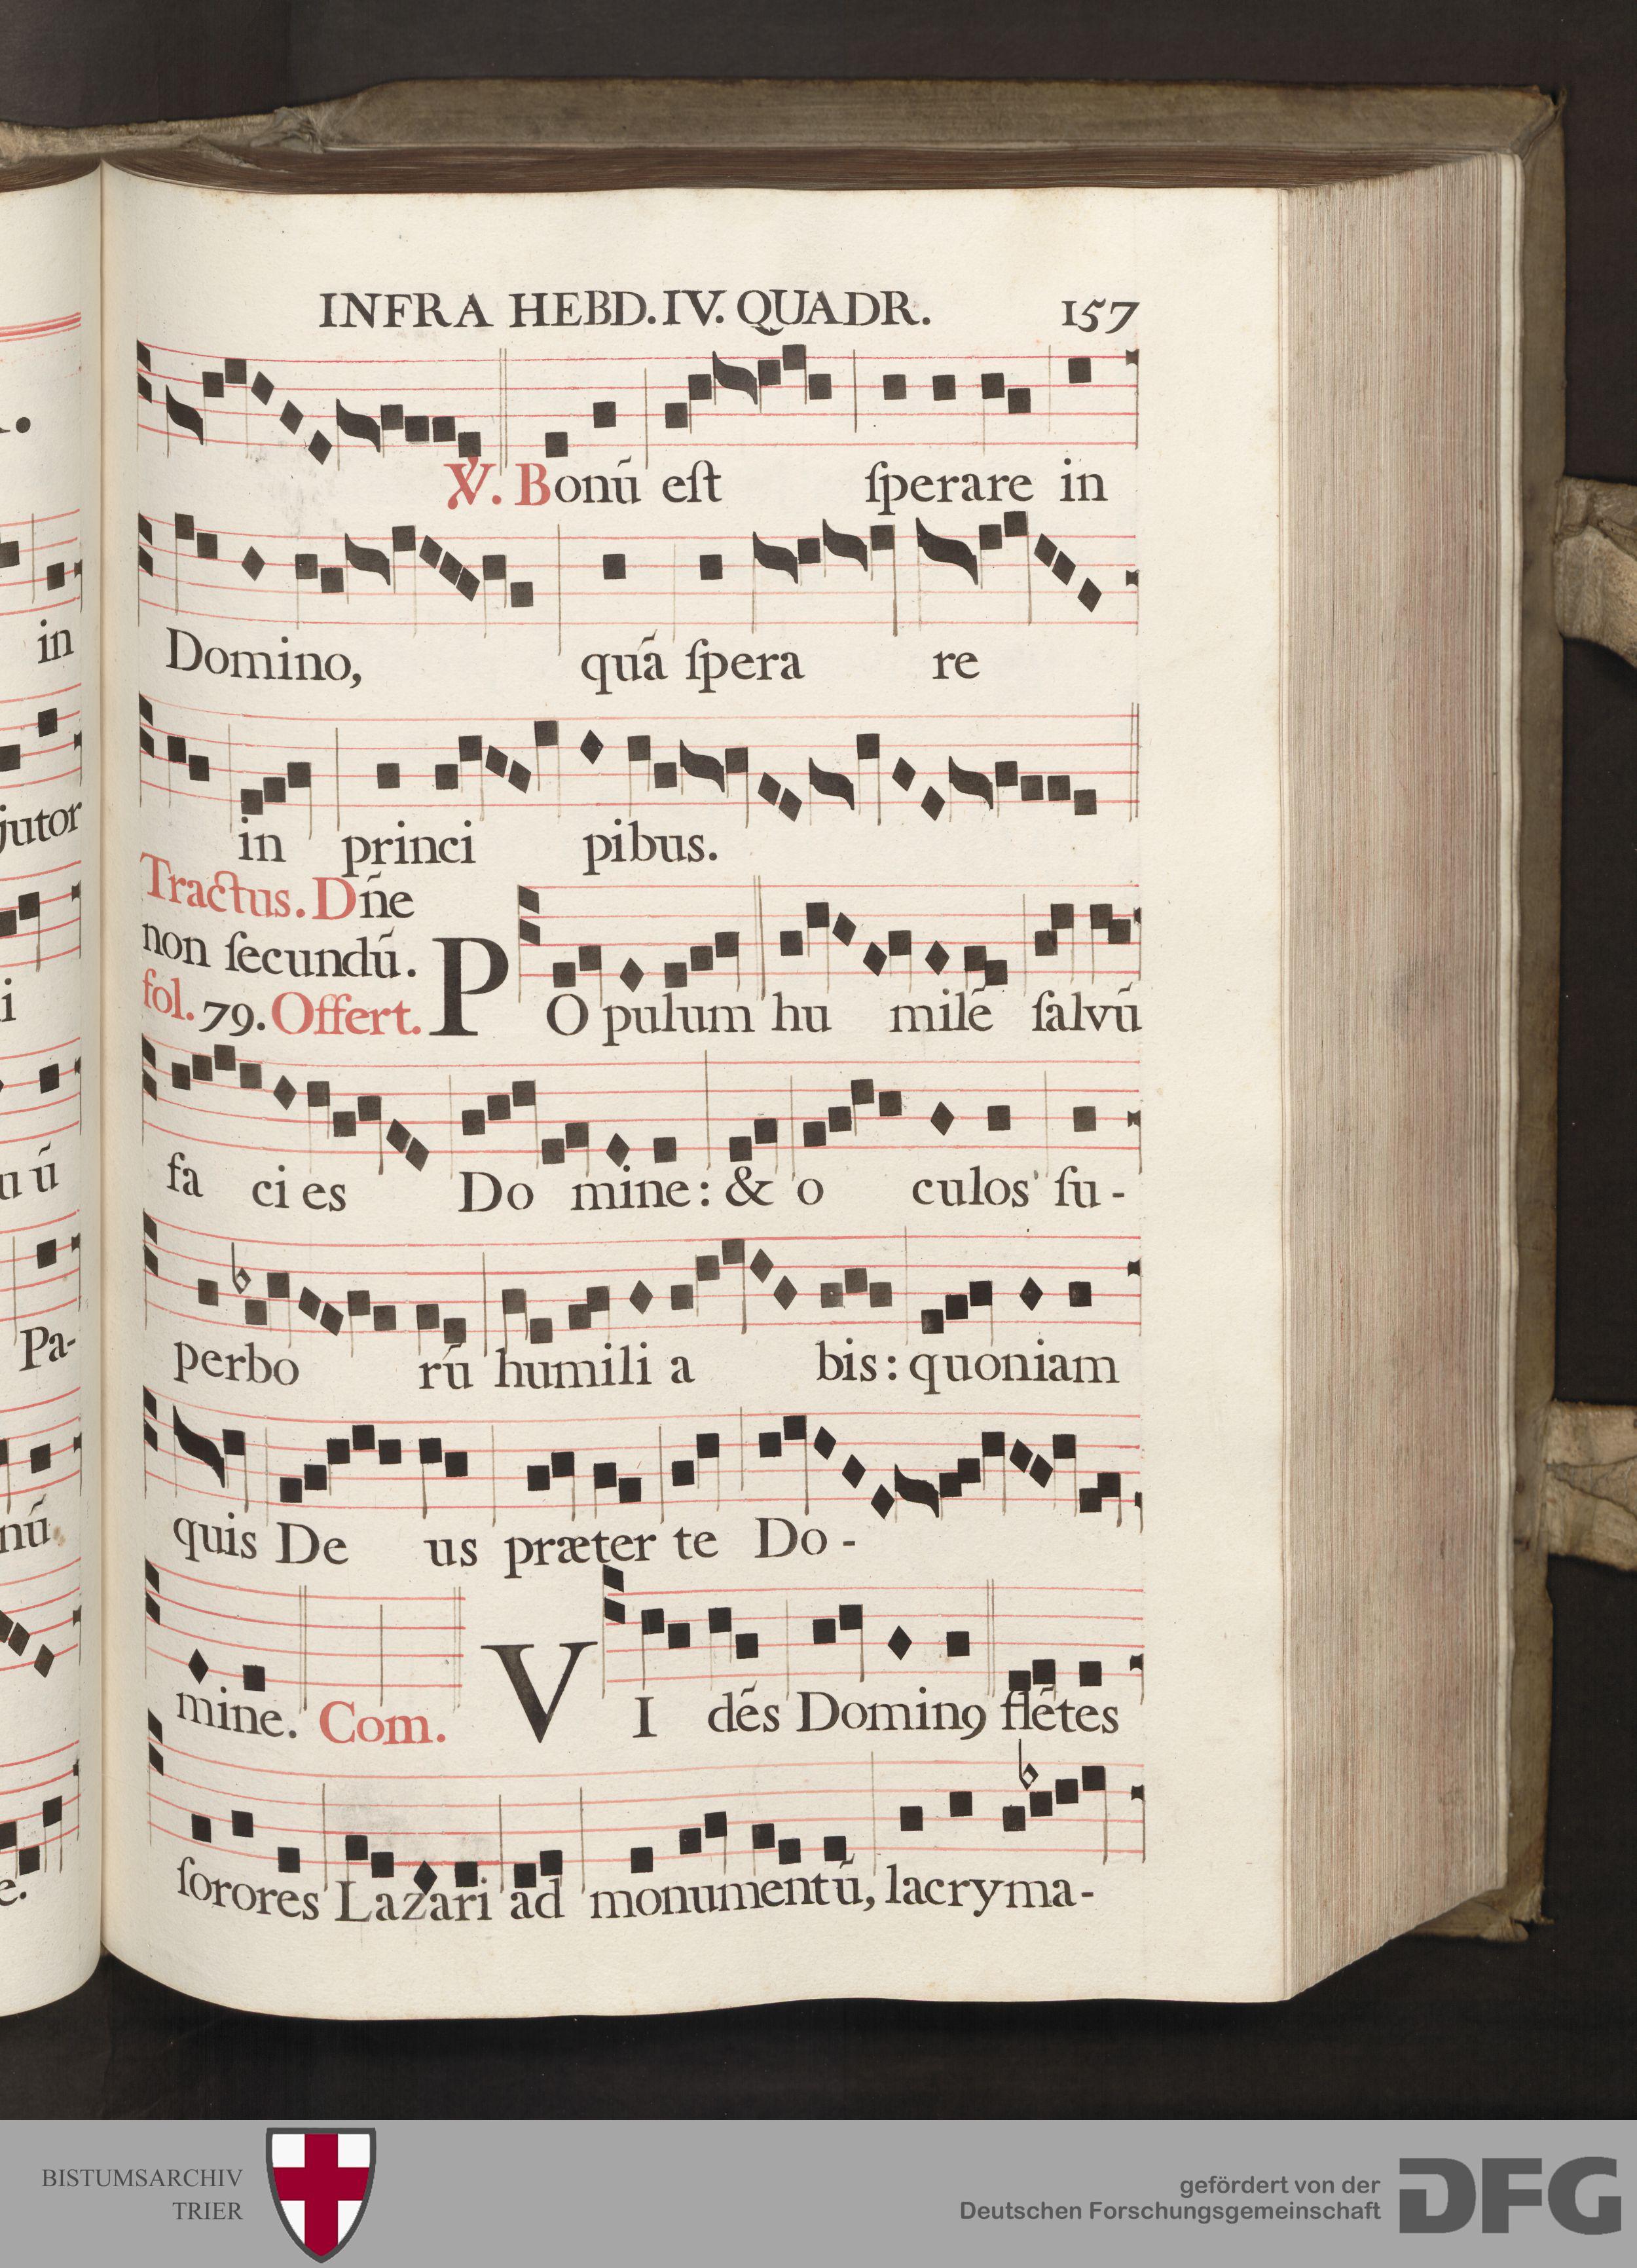 INFRA HEBD. IV. QUADR. 157
℣. Bonū eſt ſperare in
Domino, quā ſpera re
in princi pibus.
Tractus. Dñe
non ſecundū.
fol. 79. Offert. P O pulum hu milē ſalvū
fa ci es Do mine: & o culos ſu-
perbo rū humili a bis: quoniam
quis De us præter te Do-
mine. Com. V I dēs Dominꝰ flētes
ſorores Lazari ad monumentū, lacryma-
in
jutor
i
u ū
Pa-
nū
e.
BISTUMSARCHIV
TRIER
gefördert von der
Deutschen Forschungsgemeinschaft
DFG